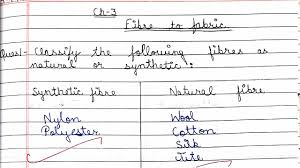 Ch-3
Fibre to fabric.
Ques1- Classify the following fibres as
natural or synthetic:
Synthetic fibre Natural fibre
Nylon Wool
Polyester Cotton
Silk
Jute